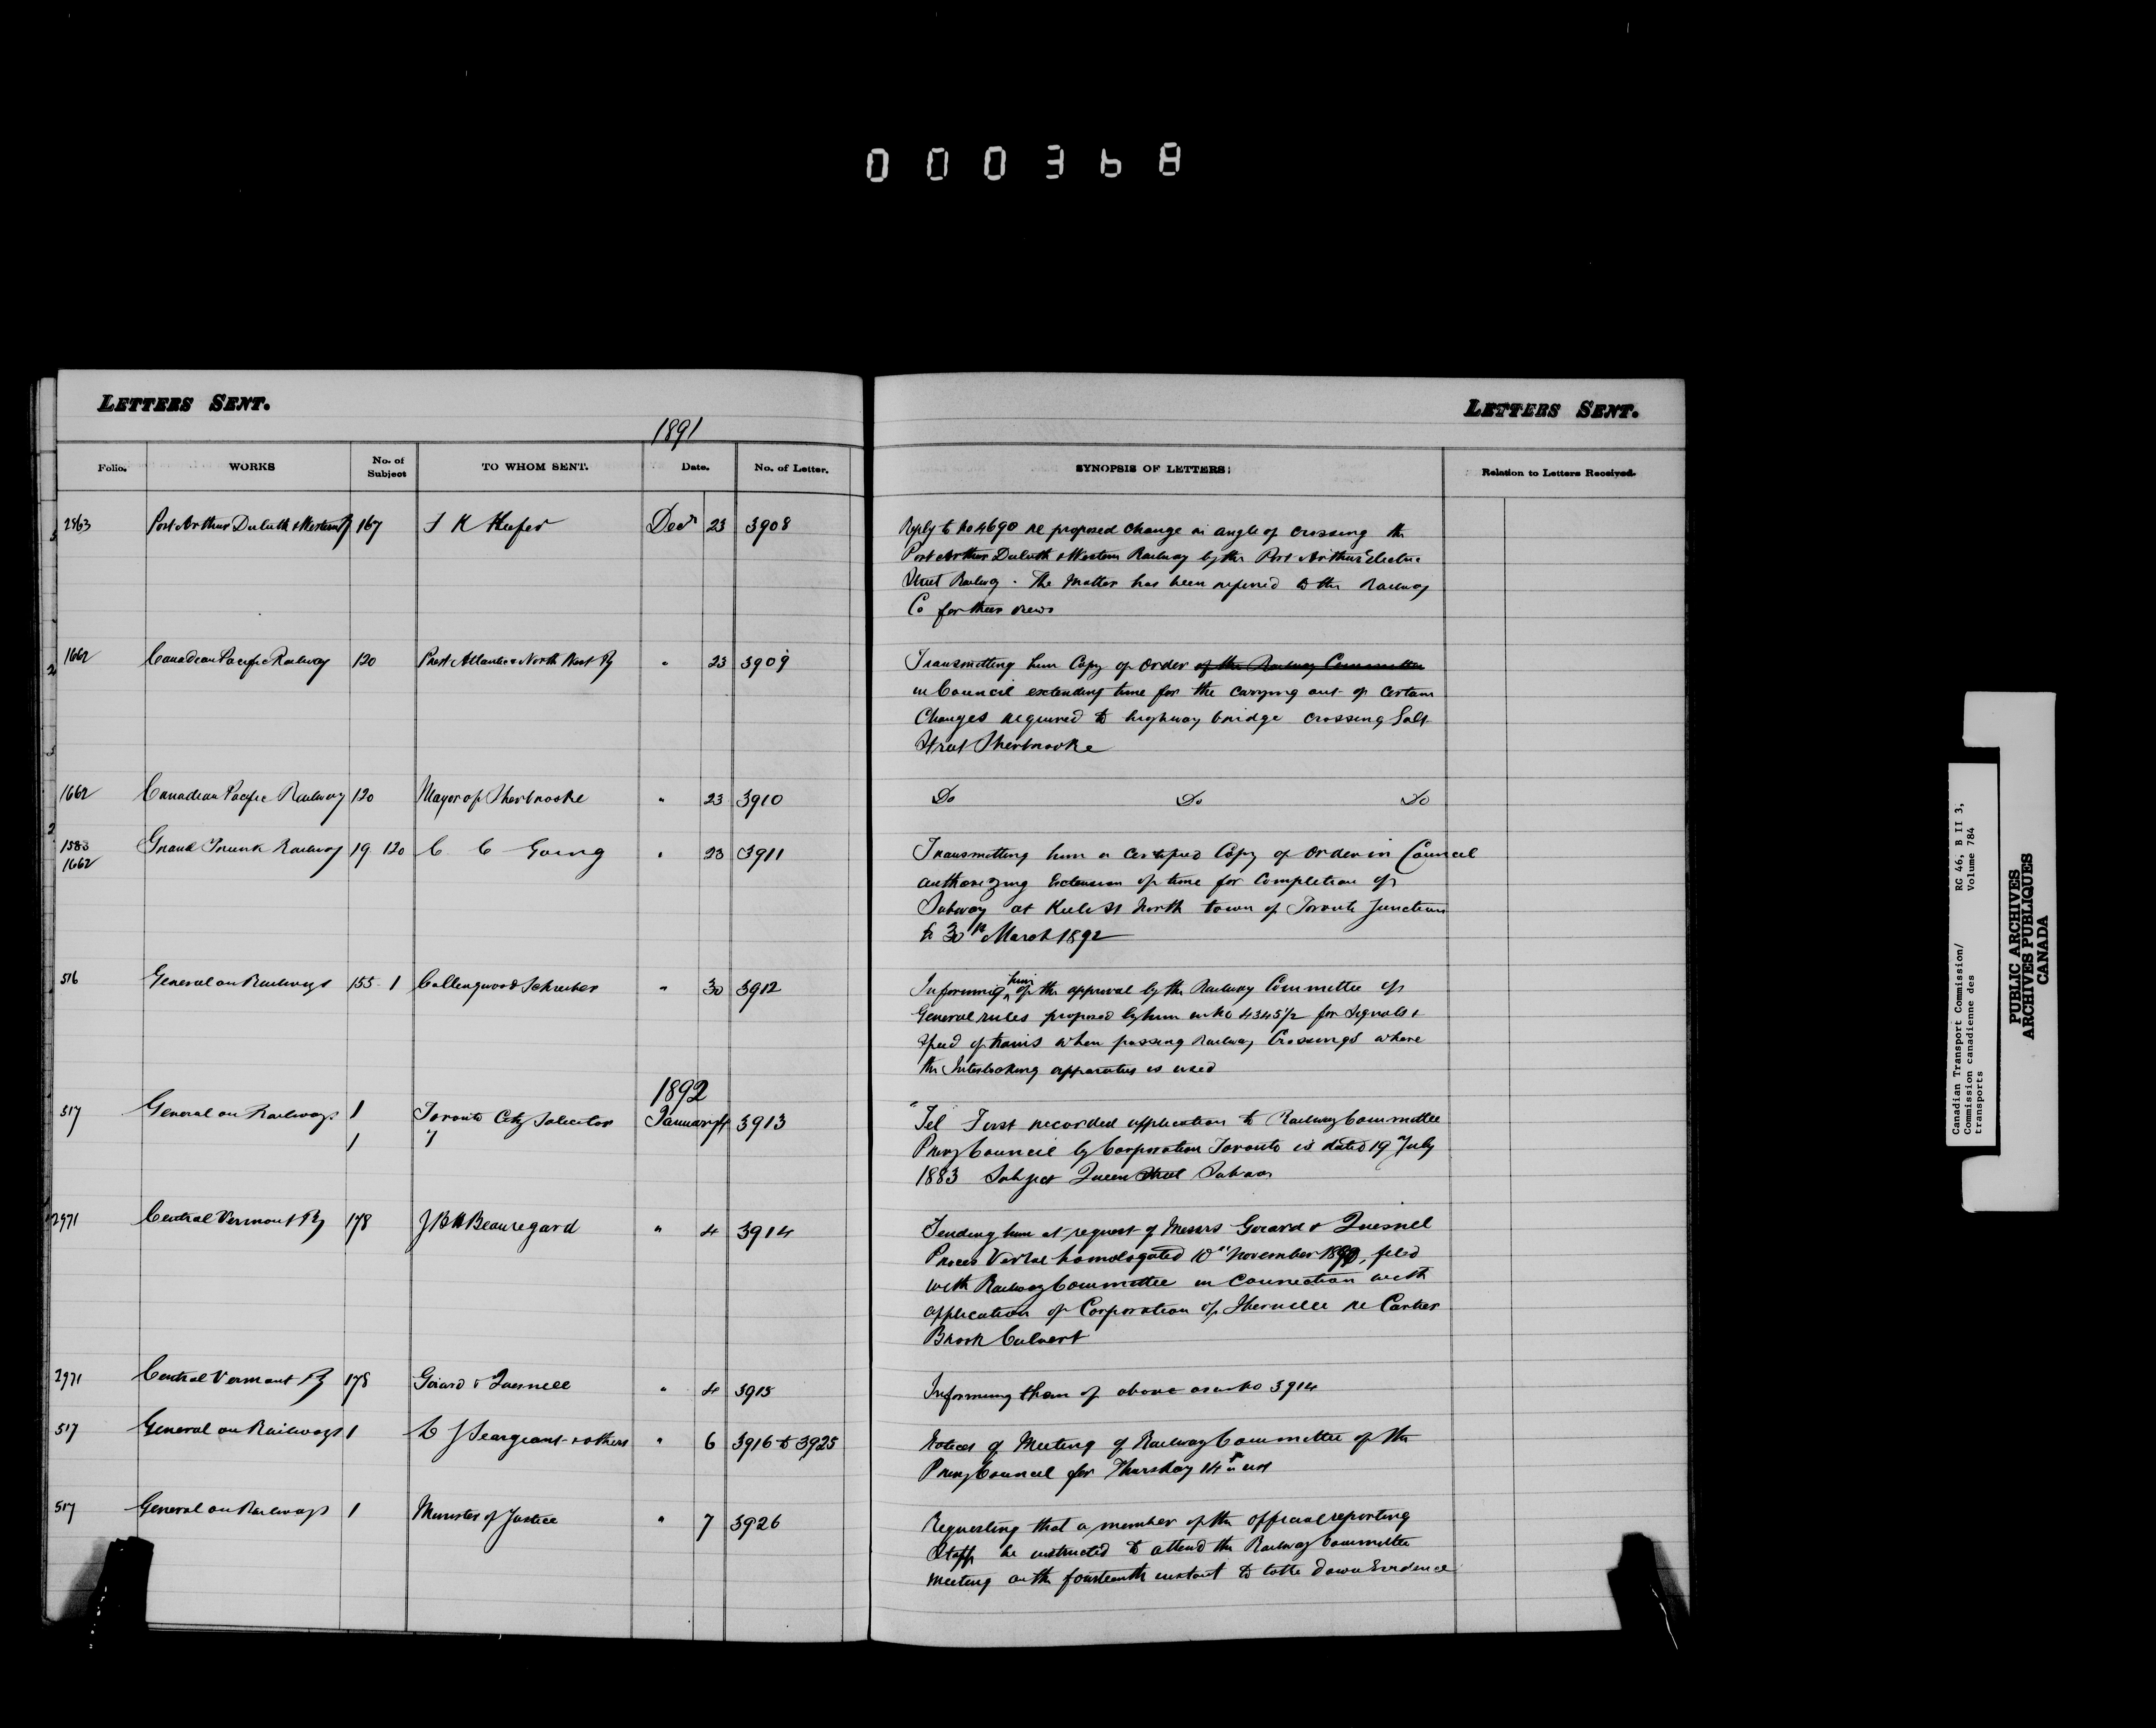 000368
LETTERS SENT.
LETTERS SENT.
1891
Folio. WORKS No. of Subject TO WHOM SENT. Date. No. of Letter. SYNOPSIS OF LETTERS: Relation to Letters Received.
2863 Port Arthur Duluth & Western Ry 167 T K Keefer Decr 23 3908
Reply to No 4690 re proposed change in angle of crossing the
Port Arthur Duluth & Western Railway by the Port Arthur Electric
Street Railway. The Matter has been referred to the Railway
Co for their views
1662 Canadian Pacific Railway 120 Prest Atlantic & North West Ry " 23 3909
Transmitting him Copy of Order of the Railway Committee
in Council extending time for the carrying out of certain
Changes required to highway bridge crossing Salt
Street Sherbrooke
1662 Canadian Pacific Railway 120 Mayor of Sherbrooke " 23 3910
Do Do Do
1583
1662 Grand Trunk Railway 19 120 C C Going " 23 3911
Transmitting him a Certified Copy of Order in Council
authorizing Extension of time for Completion of
Subway at Keele St North town of Toronto Junction
to 30th March 1892
516 General on Railways 155 1 Collingwood Schreiber " 30 3912
Informing him of the approval by the Railway Committee of
General rules proposed by him in No 4345½ for Signals &
Speed of trains when passing Railway Crossings where
the Interlocking apparatus is used
1892
517 General on Railways 1 Toronto City Solicitor January 4 3913
1 "
Tel First recorded application to Railway Committee
Privy Council by Corporation Toronto is dated 19 July
1883 Subject Queen Street Subway
2971 Central Vermont Ry 178 J B H Beauregard " 4 3914
Sending him at request of Messrs Girard & Quesnel
Proces Verbal homologated 10th November 1890, filed
with Railway Committee in Connection with
application of Corporation of Iberville re Cartier
Brook Culvert
2971 Central Vermont Ry 178 Girard & Quesnell " 4 3915
Informing them of above as in No 3914
517 General on Railways 1 L J Seargeant & others " 6 3916 to 3925
Notices of Meeting of Railway Committee of the
Privy Council for Thursday 14th inst
517 General on Railways 1 Minister of Justice " 7 3926
Requesting that a member of the official reporting
Staff be instructed to attend the Railway Committee
Meeting on the fourteenth instant to take down Evidence
Canadian Transport Commission/ RG 46, B II 3,
Commission canadienne des Volume 784
transports
PUBLIC ARCHIVES
ARCHIVES PUBLIQUES
CANADA